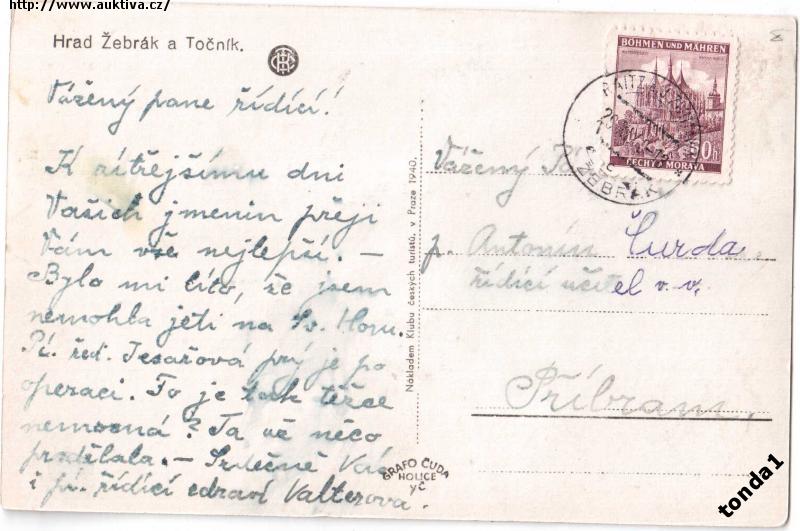 Zdroj: https://www.auktiva.cz/
Hrad Žebrák a Točník.
Vážený pane řídící!
K zítřejšímu dni
Vašich jmenin přeji
Vám vše nejlepší. —
Bylo mi líto, že jsem
nemohla jeti na Sv. Horu.
Pí. řed. Tesařová prý je po
operaci. To je tak těžce
nemocná? Ta už něco
prodělala. — Srdečně Vás
i pí. řídící zdraví Valterova.
Nákladem Klubu českých turistů, v Praze 1940.
GRAFO ČUDA
HOLICE
YČ
BÖHMEN UND MÄHREN
50h
ČECHY A MORAVA
ŽEBRÁK
Vážený Pán
p. Antonín Čurda,
řídící učitel v. v.
Příbram,
tonda1